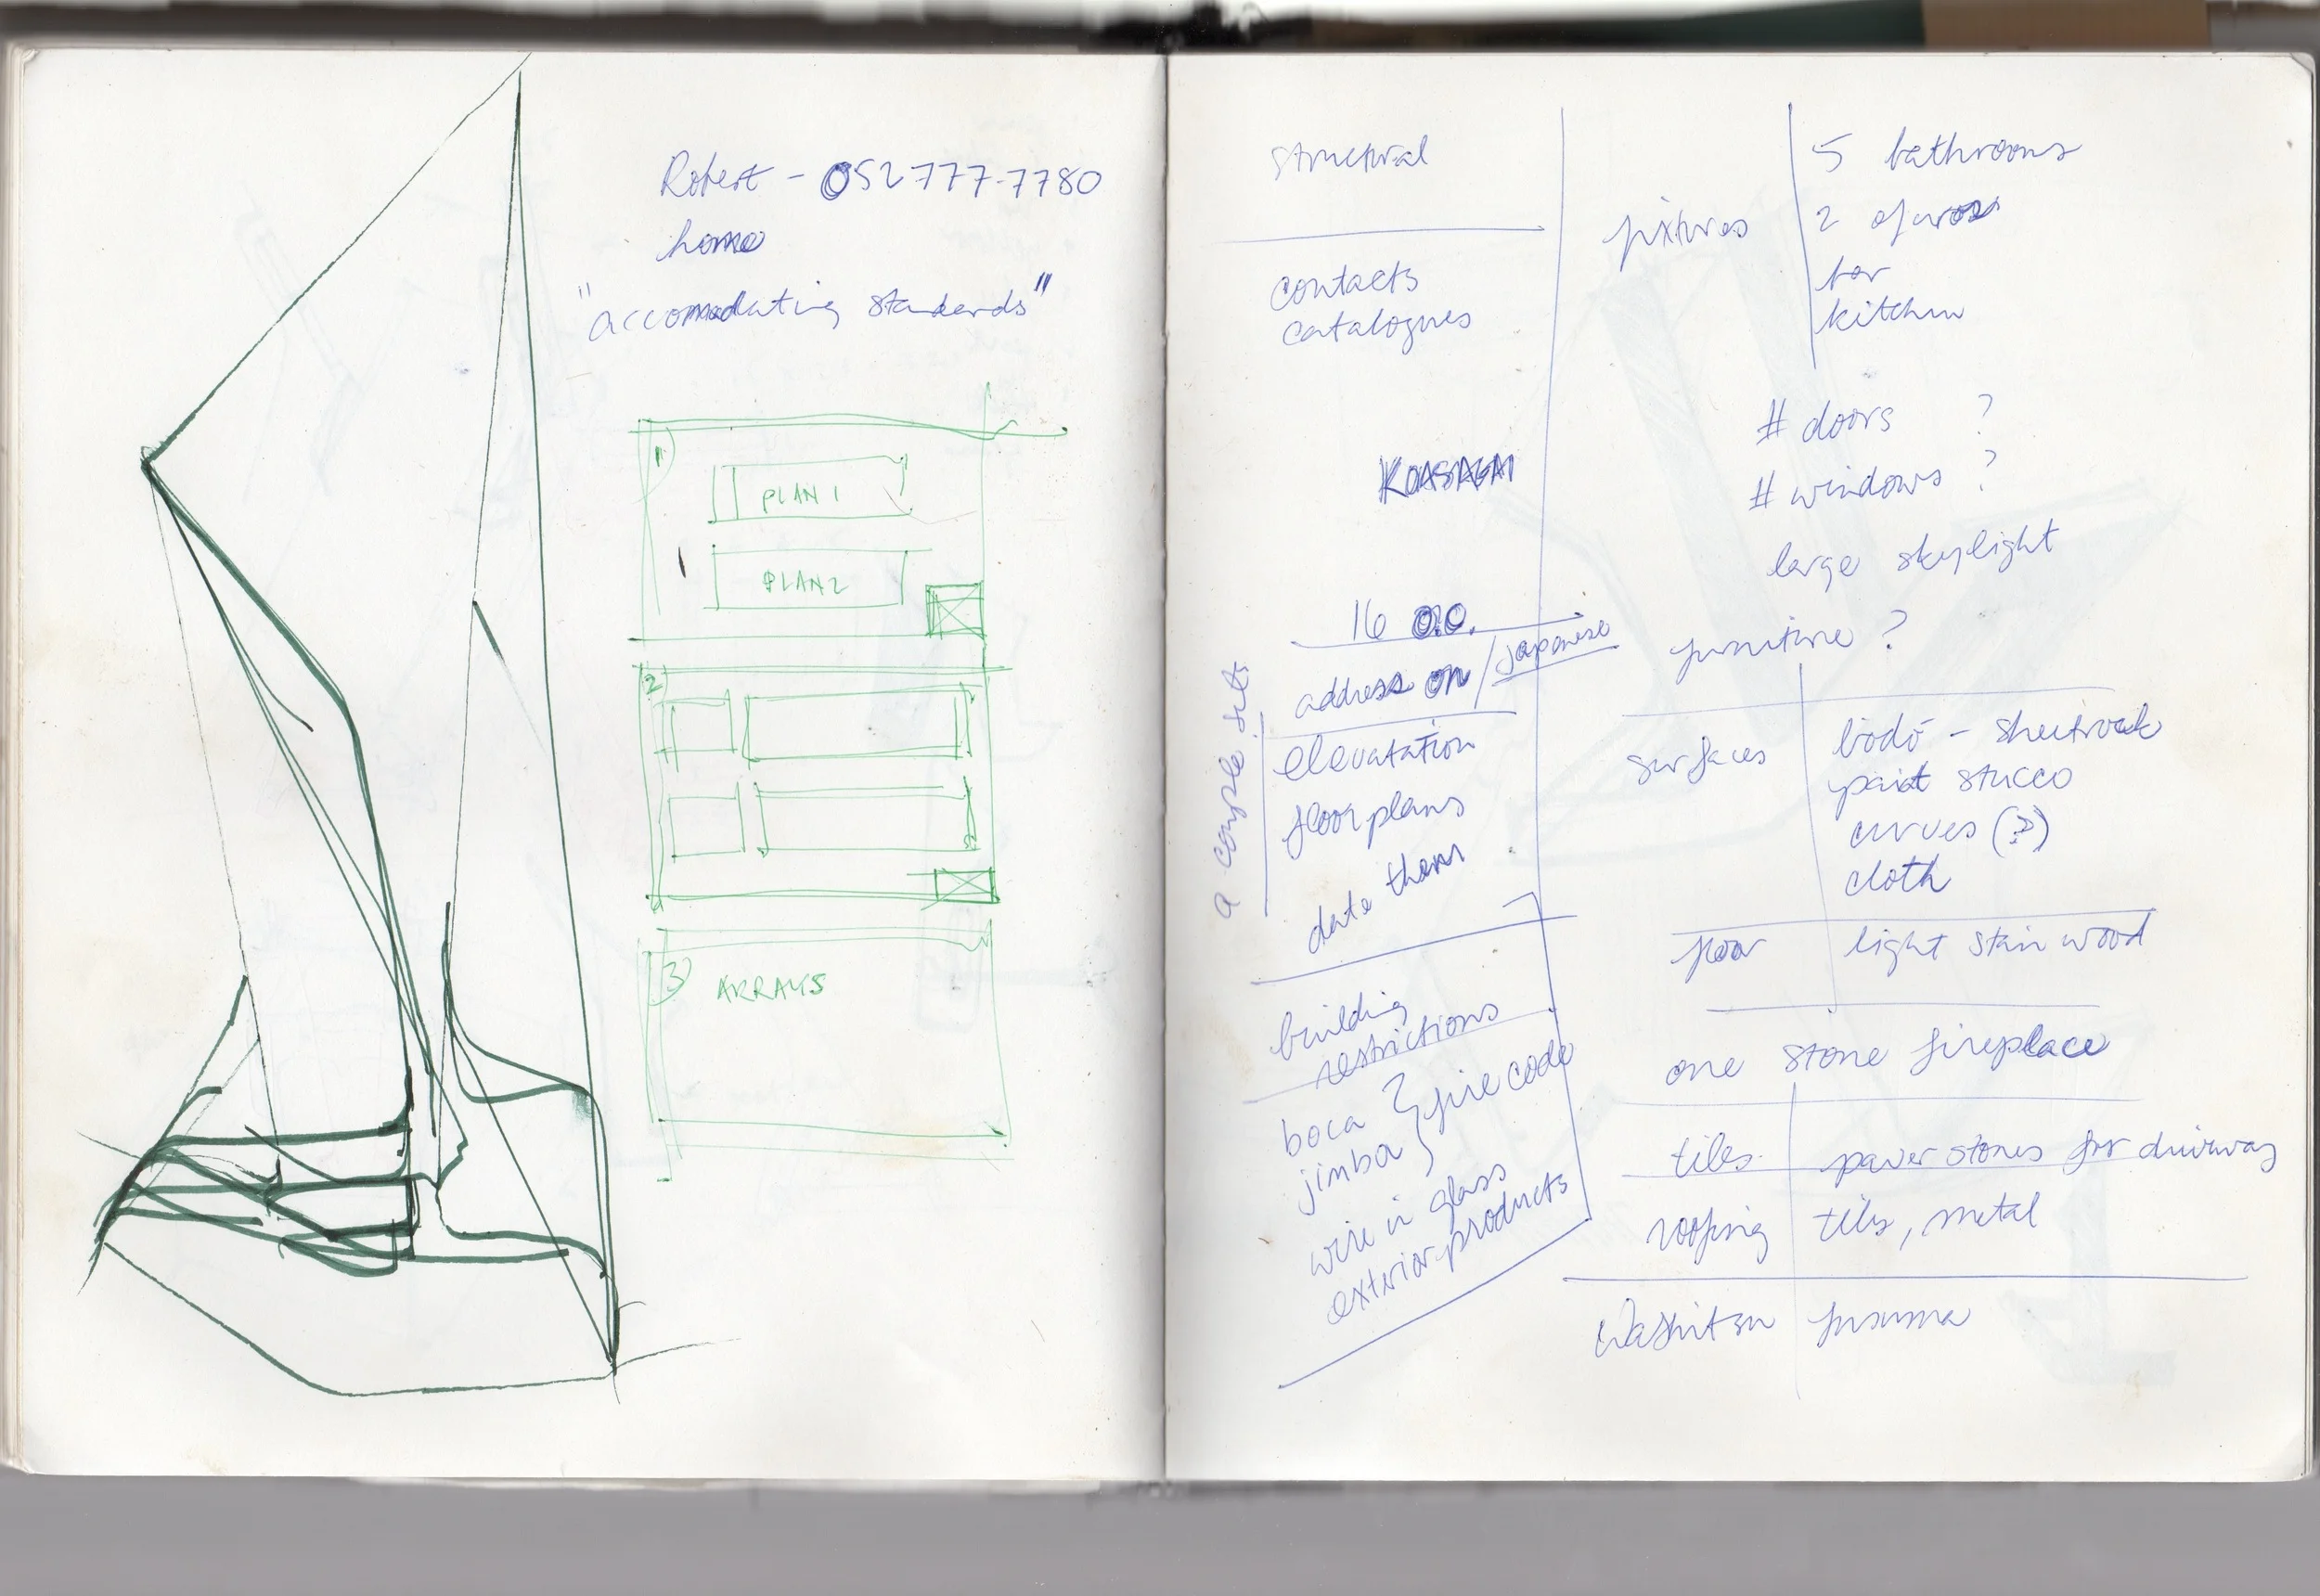 Robert - 052777-7780
home
"accomodating standards"
1)
PLAN 1
PLAN 2
2
3)
ARRAYS
structural
contacts
catalogues
16 O.C.
address on / japanese
a couple sets
elevatation
floorplans
date them
building
restrictions
boca
jimba } fire code
wire in glass
exterior products
fixtures
5 bathrooms
2 ofuros
bar
kitchen
# doors ?
# windows ?
large skylight
furniture ?
surfaces
bodo - sheetrock
paint stucco
curves (?)
cloth
floor
light stain wood
one stone fireplace
tiles
paver stones for driveway
roofing
tiles, metal
washitsu
fusuma